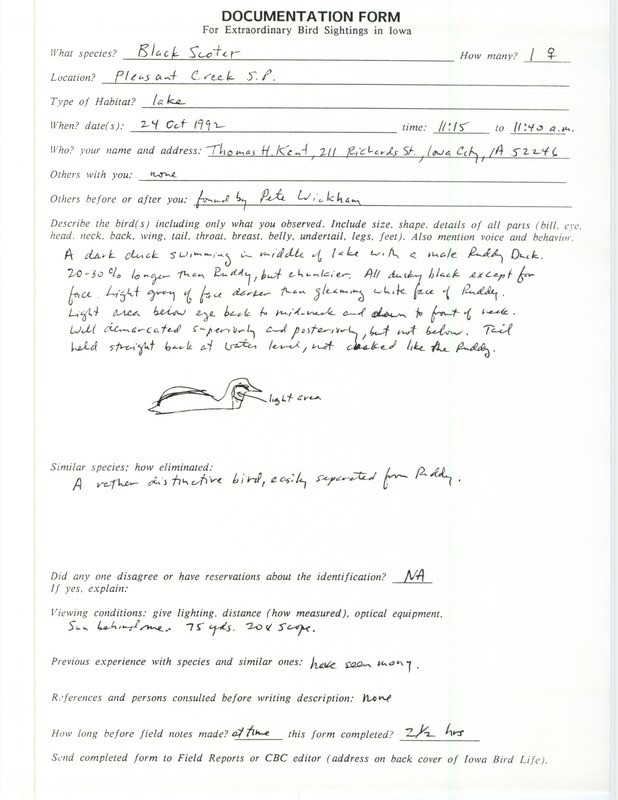 DOCUMENTATION FORM
For Extraordinary Bird Sightings in Iowa
What species? Black Scoter How many? 1 ♀
Location? Pleasant Creek S.P.
Type of Habitat? lake
When? date(s): 24 Oct 1992 time: 11:15 to 11:40 a.m.
Who? your name and address: Thomas H. Kent, 211 Richards St., Iowa City, IA 52246
Others with you: none
Others before or after you: found by Pete Wickham
Describe the bird(s) including only what you observed. Include size, shape, details of all parts (bill, eye,
head, neck, back, wing, tail, throat, breast, belly, undertail, legs, feet). Also mention voice and behavior.
A dark duck swimming in middle of lake with a male Ruddy Duck.
20-30% longer than Ruddy, but chunkier. All dusky black except for
face. Light gray of face darker than gleaming white face of Ruddy.
Light area below eye back to mid-neck and down to front of neck.
Well demarcated superiorly and posteriorly, but not below. Tail
held straight back at water level, not cocked like the Ruddy.
light area
Similar species; how eliminated:
A rather distinctive bird, easily separated from Ruddy.
Did any one disagree or have reservations about the identification? NA
If yes, explain:
Viewing conditions: give lighting, distance (how measured), optical equipment.
Sun behind me. 75 yds. 20X scope.
Previous experience with species and similar ones: have seen many.
References and persons consulted before writing description: none
How long before field notes made? at time this form completed? 2½ hrs
Send completed form to Field Reports or CBC editor (address on back cover of Iowa Bird Life).